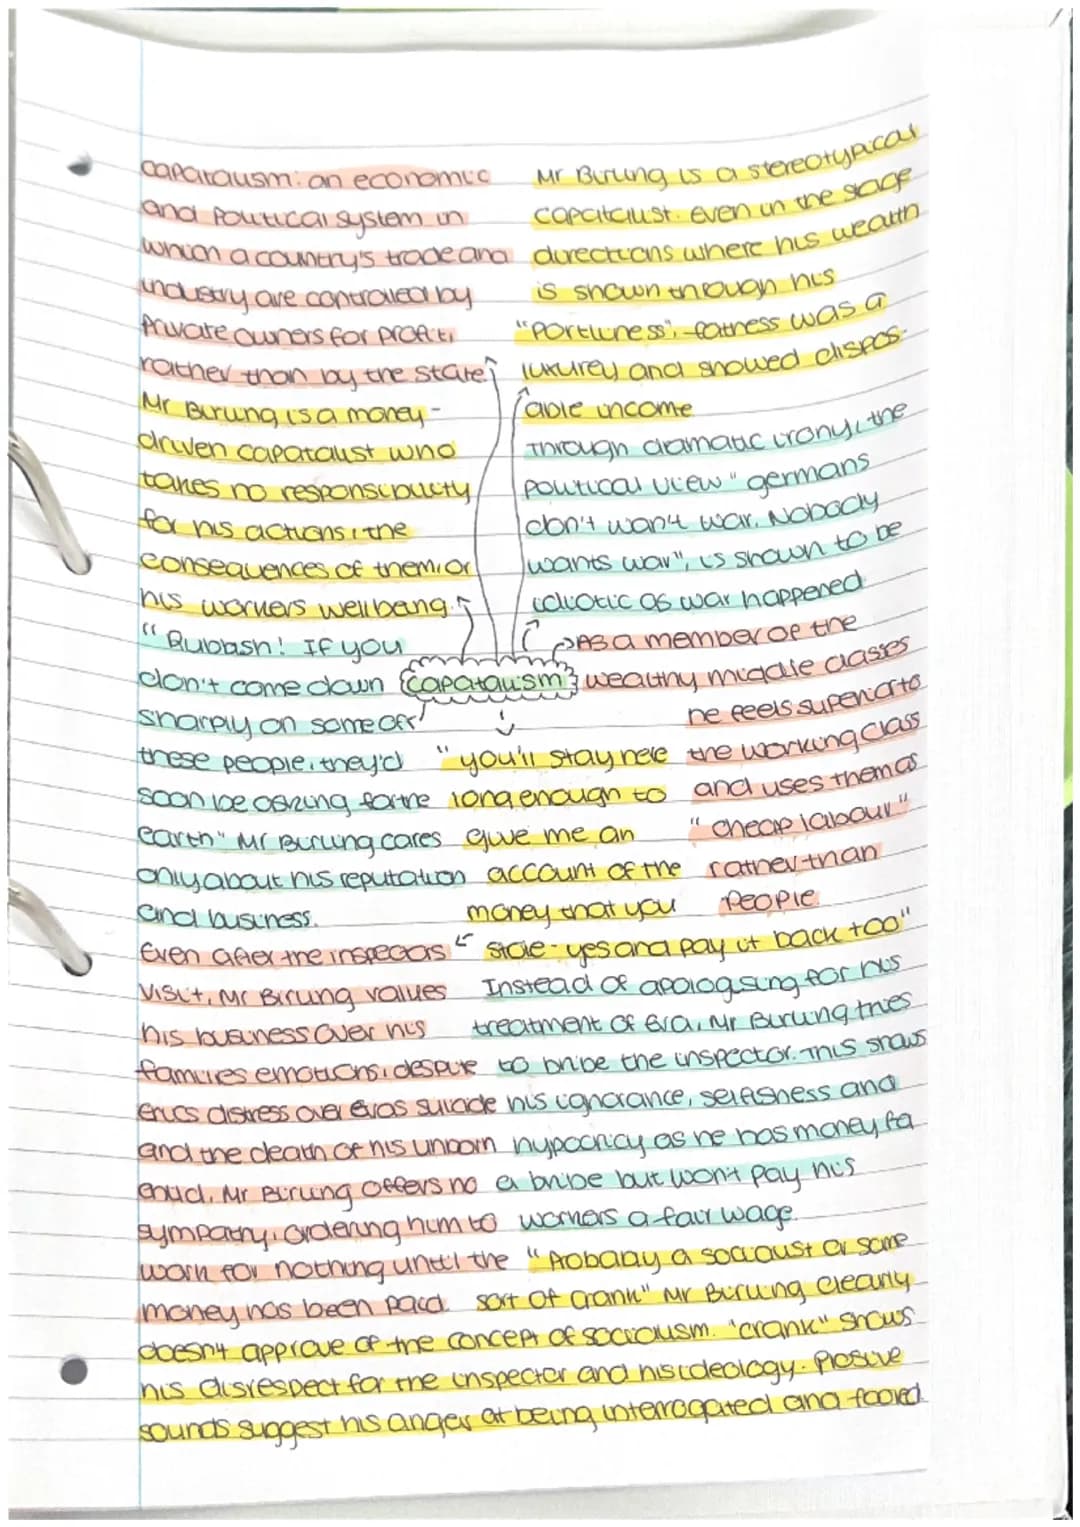 capatalism: an economic
and political system in
which a country's trade and
industry are controlled by
private owners for profit,
rather than by the state
Mr Birling is a money-
driven capatalist who
takes no responsibility
for his actions, the
consequences of them, or
his workers wellbeing.
"Rubbish! If you
don't come down
sharply on some of
these people, they'd
soon be asking for the
earth" Mr Birling cares
only about his reputation
and business.
Even after the inspectors
visit, Mr Birling values
his business over his
families emotions, despite
Erics distress over Evas suicide
and the death of his unborn
child. Mr Birling offers no
sympathy, ordering him to
work for nothing until the
money has been paid.
Mr Birling is a stereotypical
capitalist. Even in the stage
directions where his wealth
is shown through his
"Portliness", - fatness was a
luxurey and showed dispos-
able income
Through dramatic irony, the
political view "germans
don't want war. Nobody
wants war", is shown to be
idiotic as war happened
capatalism
As a member of the
wealthy middle classes
he feels superior to
the working class
and uses them as
"cheap labour"
rather than
people
"you'll stay here
long enough to
give me an
account of the
money that you
stole - yes and pay it back too"
Instead of apologising for his
treatment of Eva, Mr Birling tries
to bribe the inspector. This shows
his ignorance, selfishness and
hypocricy as he has money for
a bribe but won't pay his
workers a fair wage.
"Probably a socialist or some
sort of crank" Mr Birling clearly
doesn't approve of the concept of socialism. "crank" shows
his disrespect for the inspector and his ideology. Plosive
sounds suggest his anger at being interrogated and